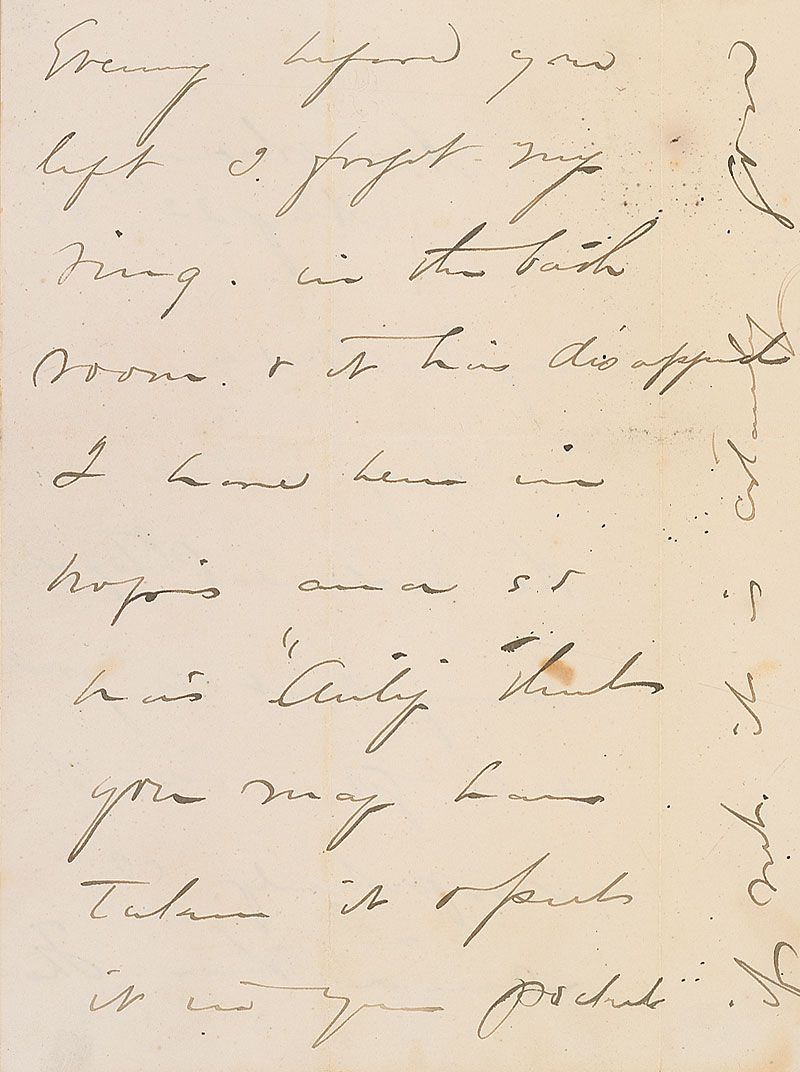 Evening before you
left I forgot my
ring. in the bath
room. & it has disappeared
I have been in
hopes and so
has "Anty" that
you may have
taken it & put
it in your pocket
it is